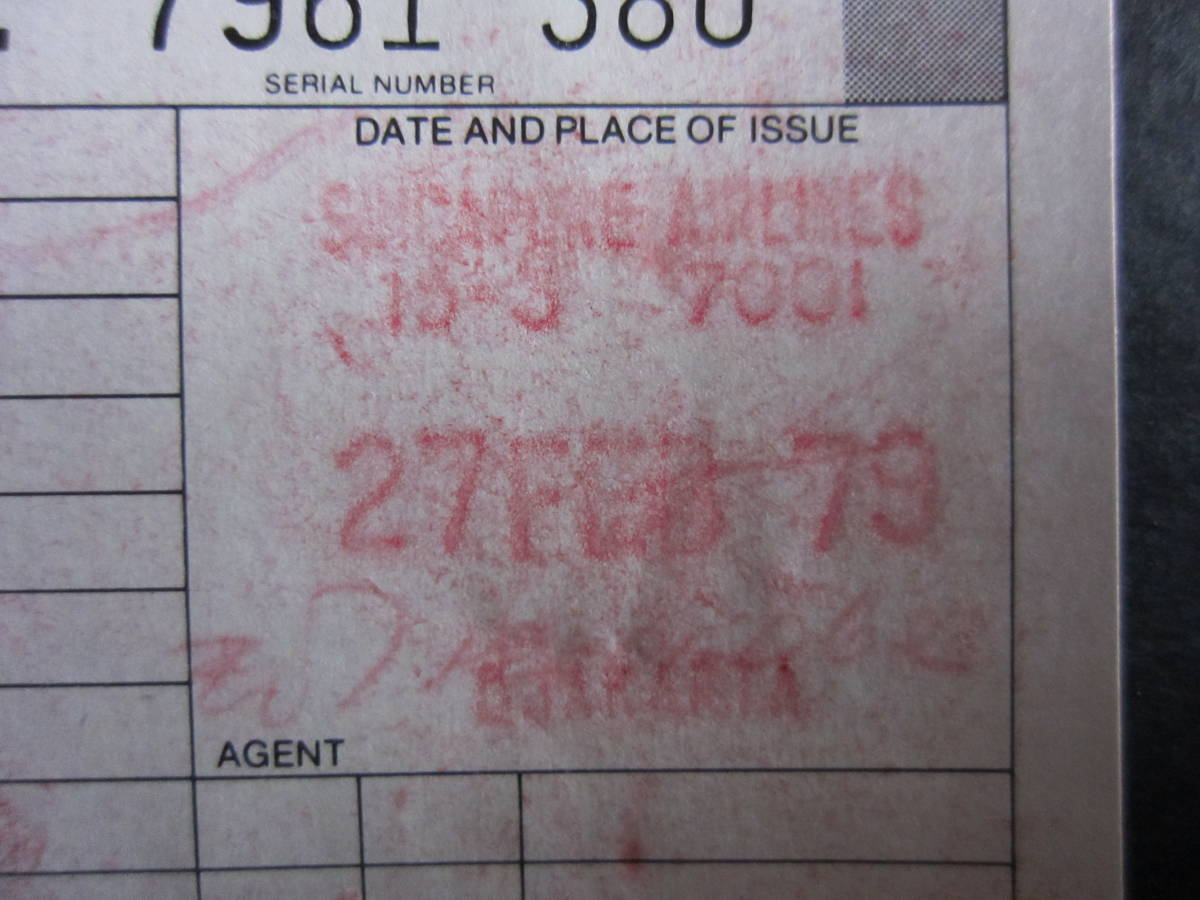 7961 380
SERIAL NUMBER
DATE AND PLACE OF ISSUE
SINGAPORE AIRLINES
15-3 7001
27 FEB 79
DJAKARTA
AGENT